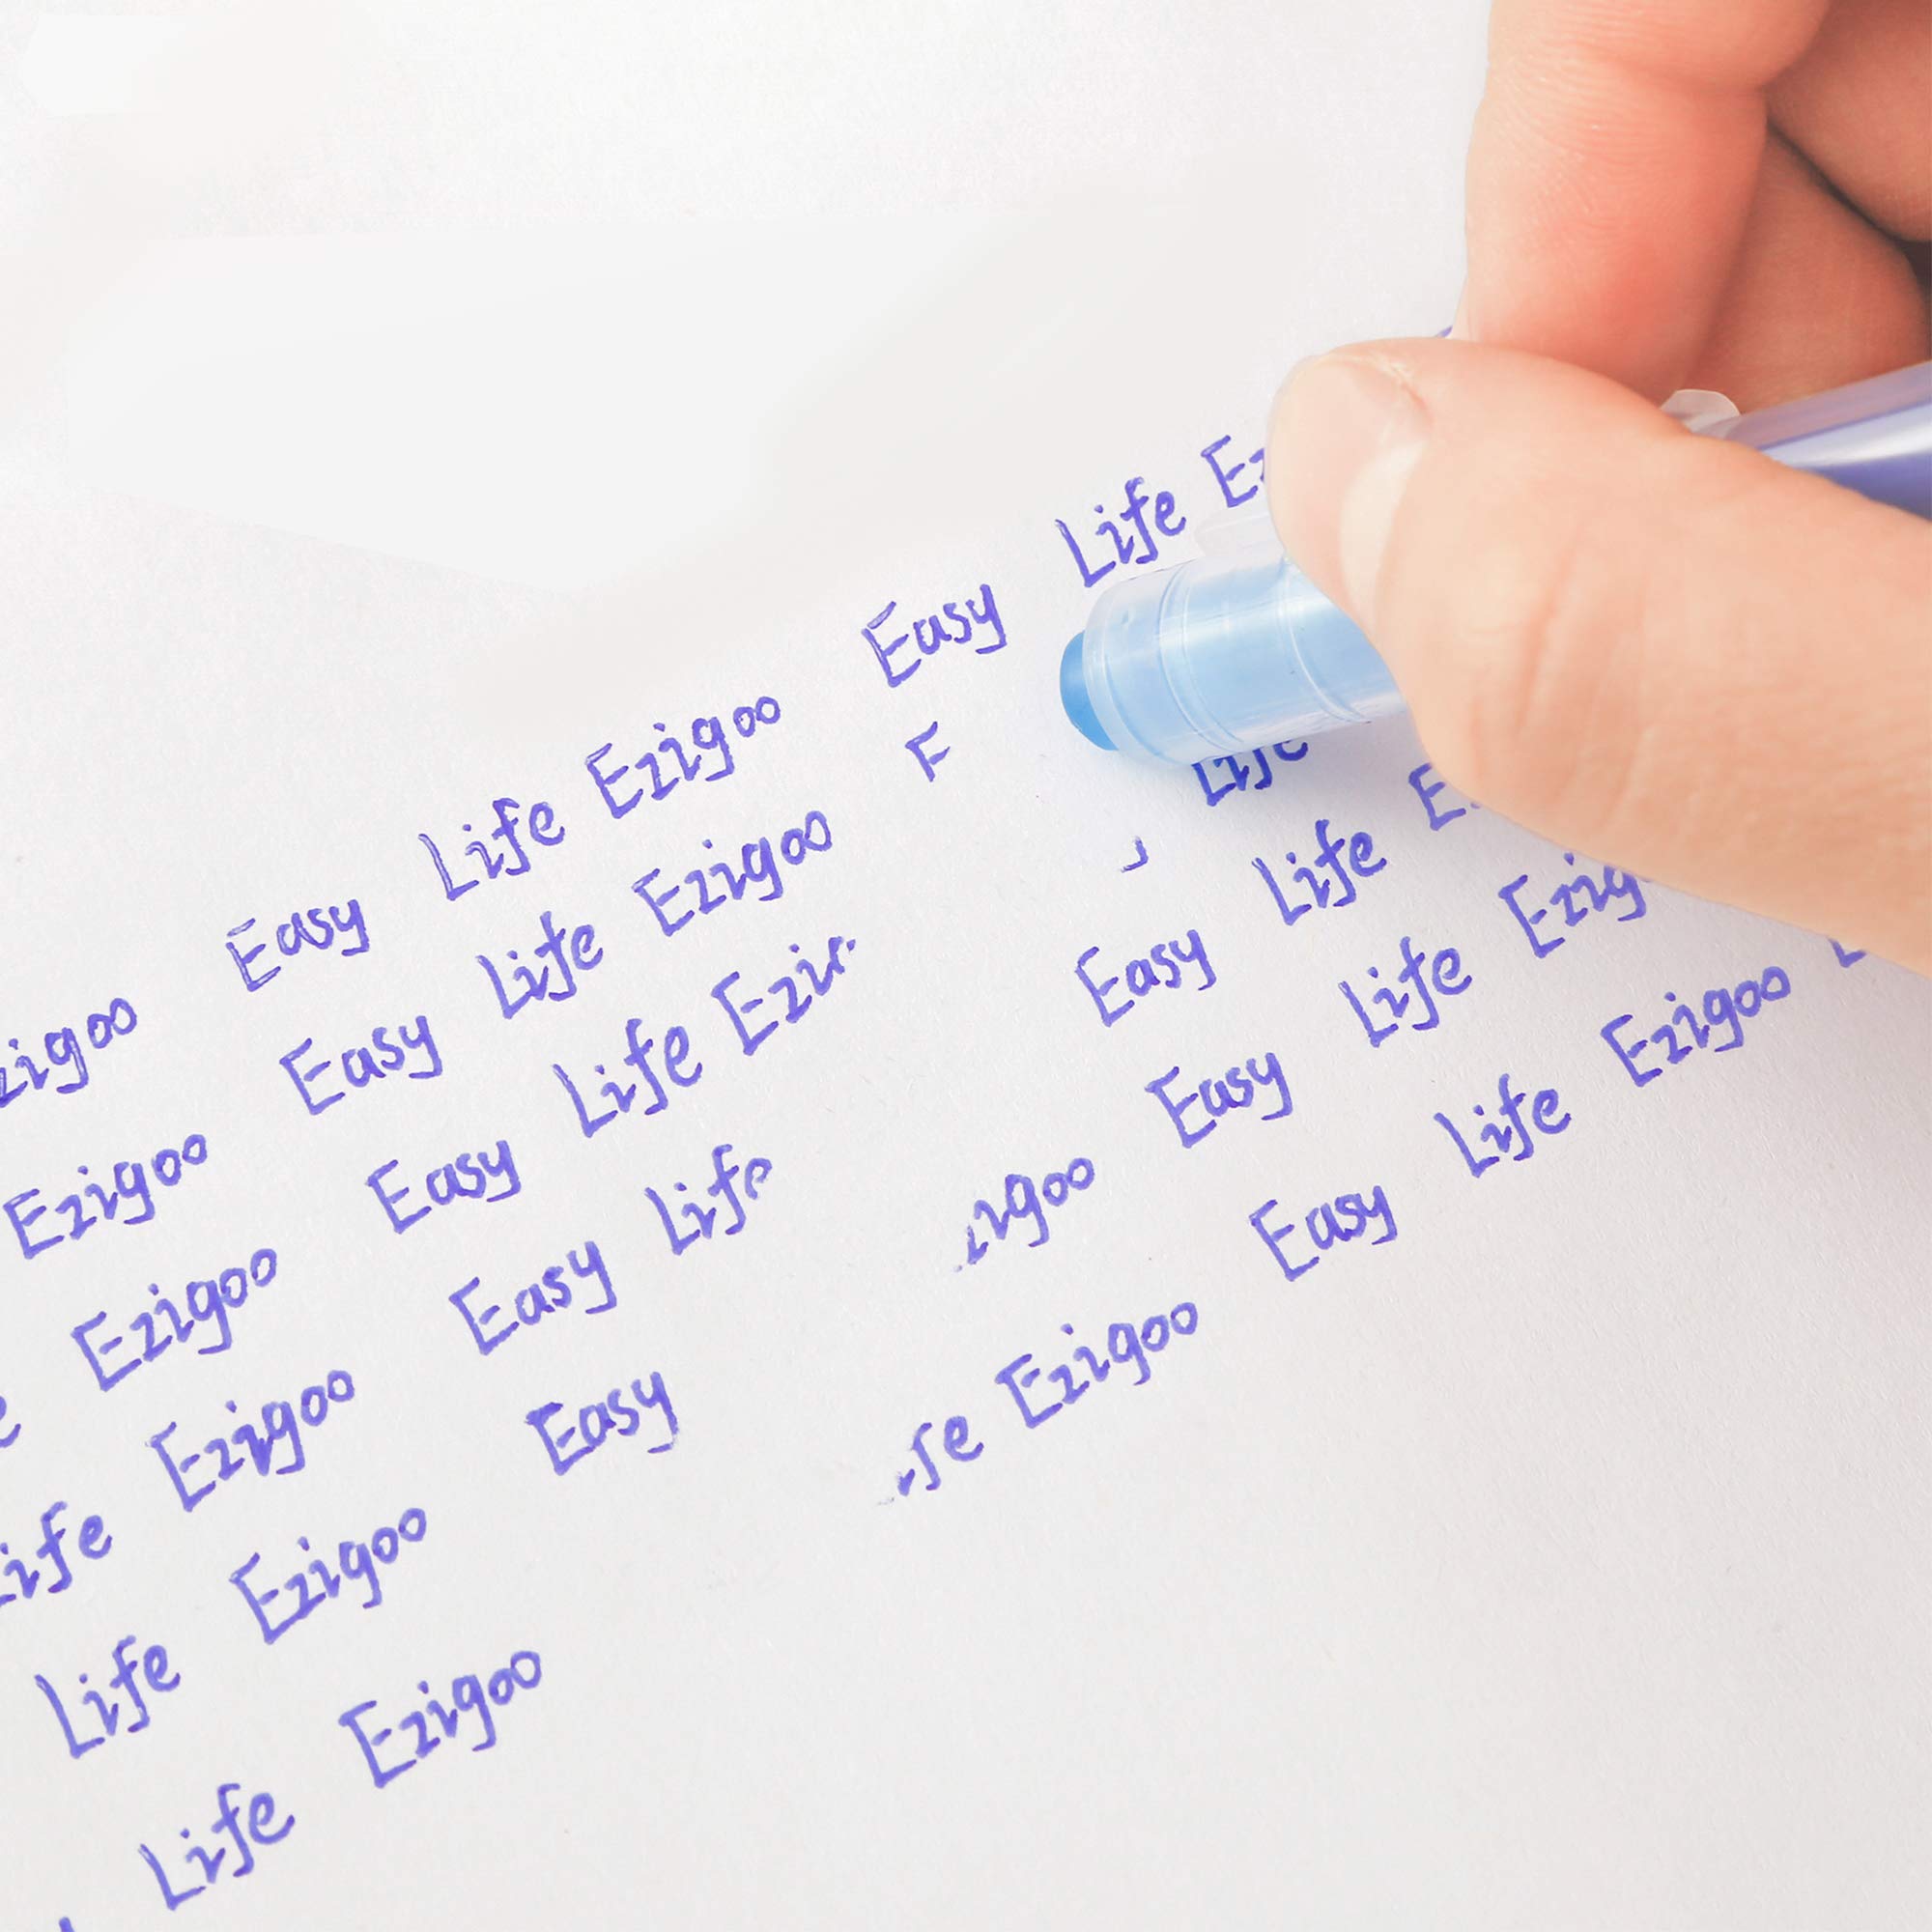 zigoo Easy Life Ezigoo Easy Life Ez
Ezigoo Easy Life Ezigoo
e Ezigoo Easy Life Ezi Life
ife Ezigoo Easy Life Easy Life E
Life Ezigoo Easy igoo Easy Life Ezig
Life Ezigoo fe Ezigoo Easy Life Ezigoo